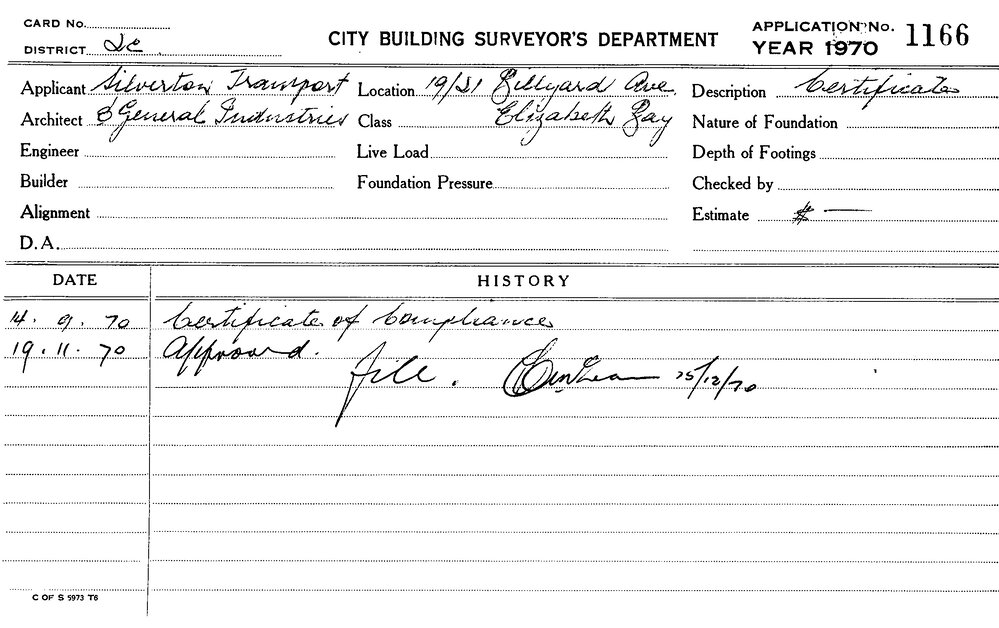 CARD No.
DISTRICT
CITY BUILDING SURVEYOR'S DEPARTMENT
APPLICATION No. 1166
YEAR 1970
Applicant Silverton Transport
Location 19/21 Billyard Ave.
Description Certificate
Architect & General Industries
Class Elizabeth Bay
Nature of Foundation
Engineer
Live Load
Depth of Footings
Builder
Foundation Pressure
Checked by
Alignment
Estimate $ —
D.A.
DATE HISTORY
14. 9. 70 Certificate of Compliance
19. 11. 70 Approved.
file. 15/12/70
C OF S 5973 T6